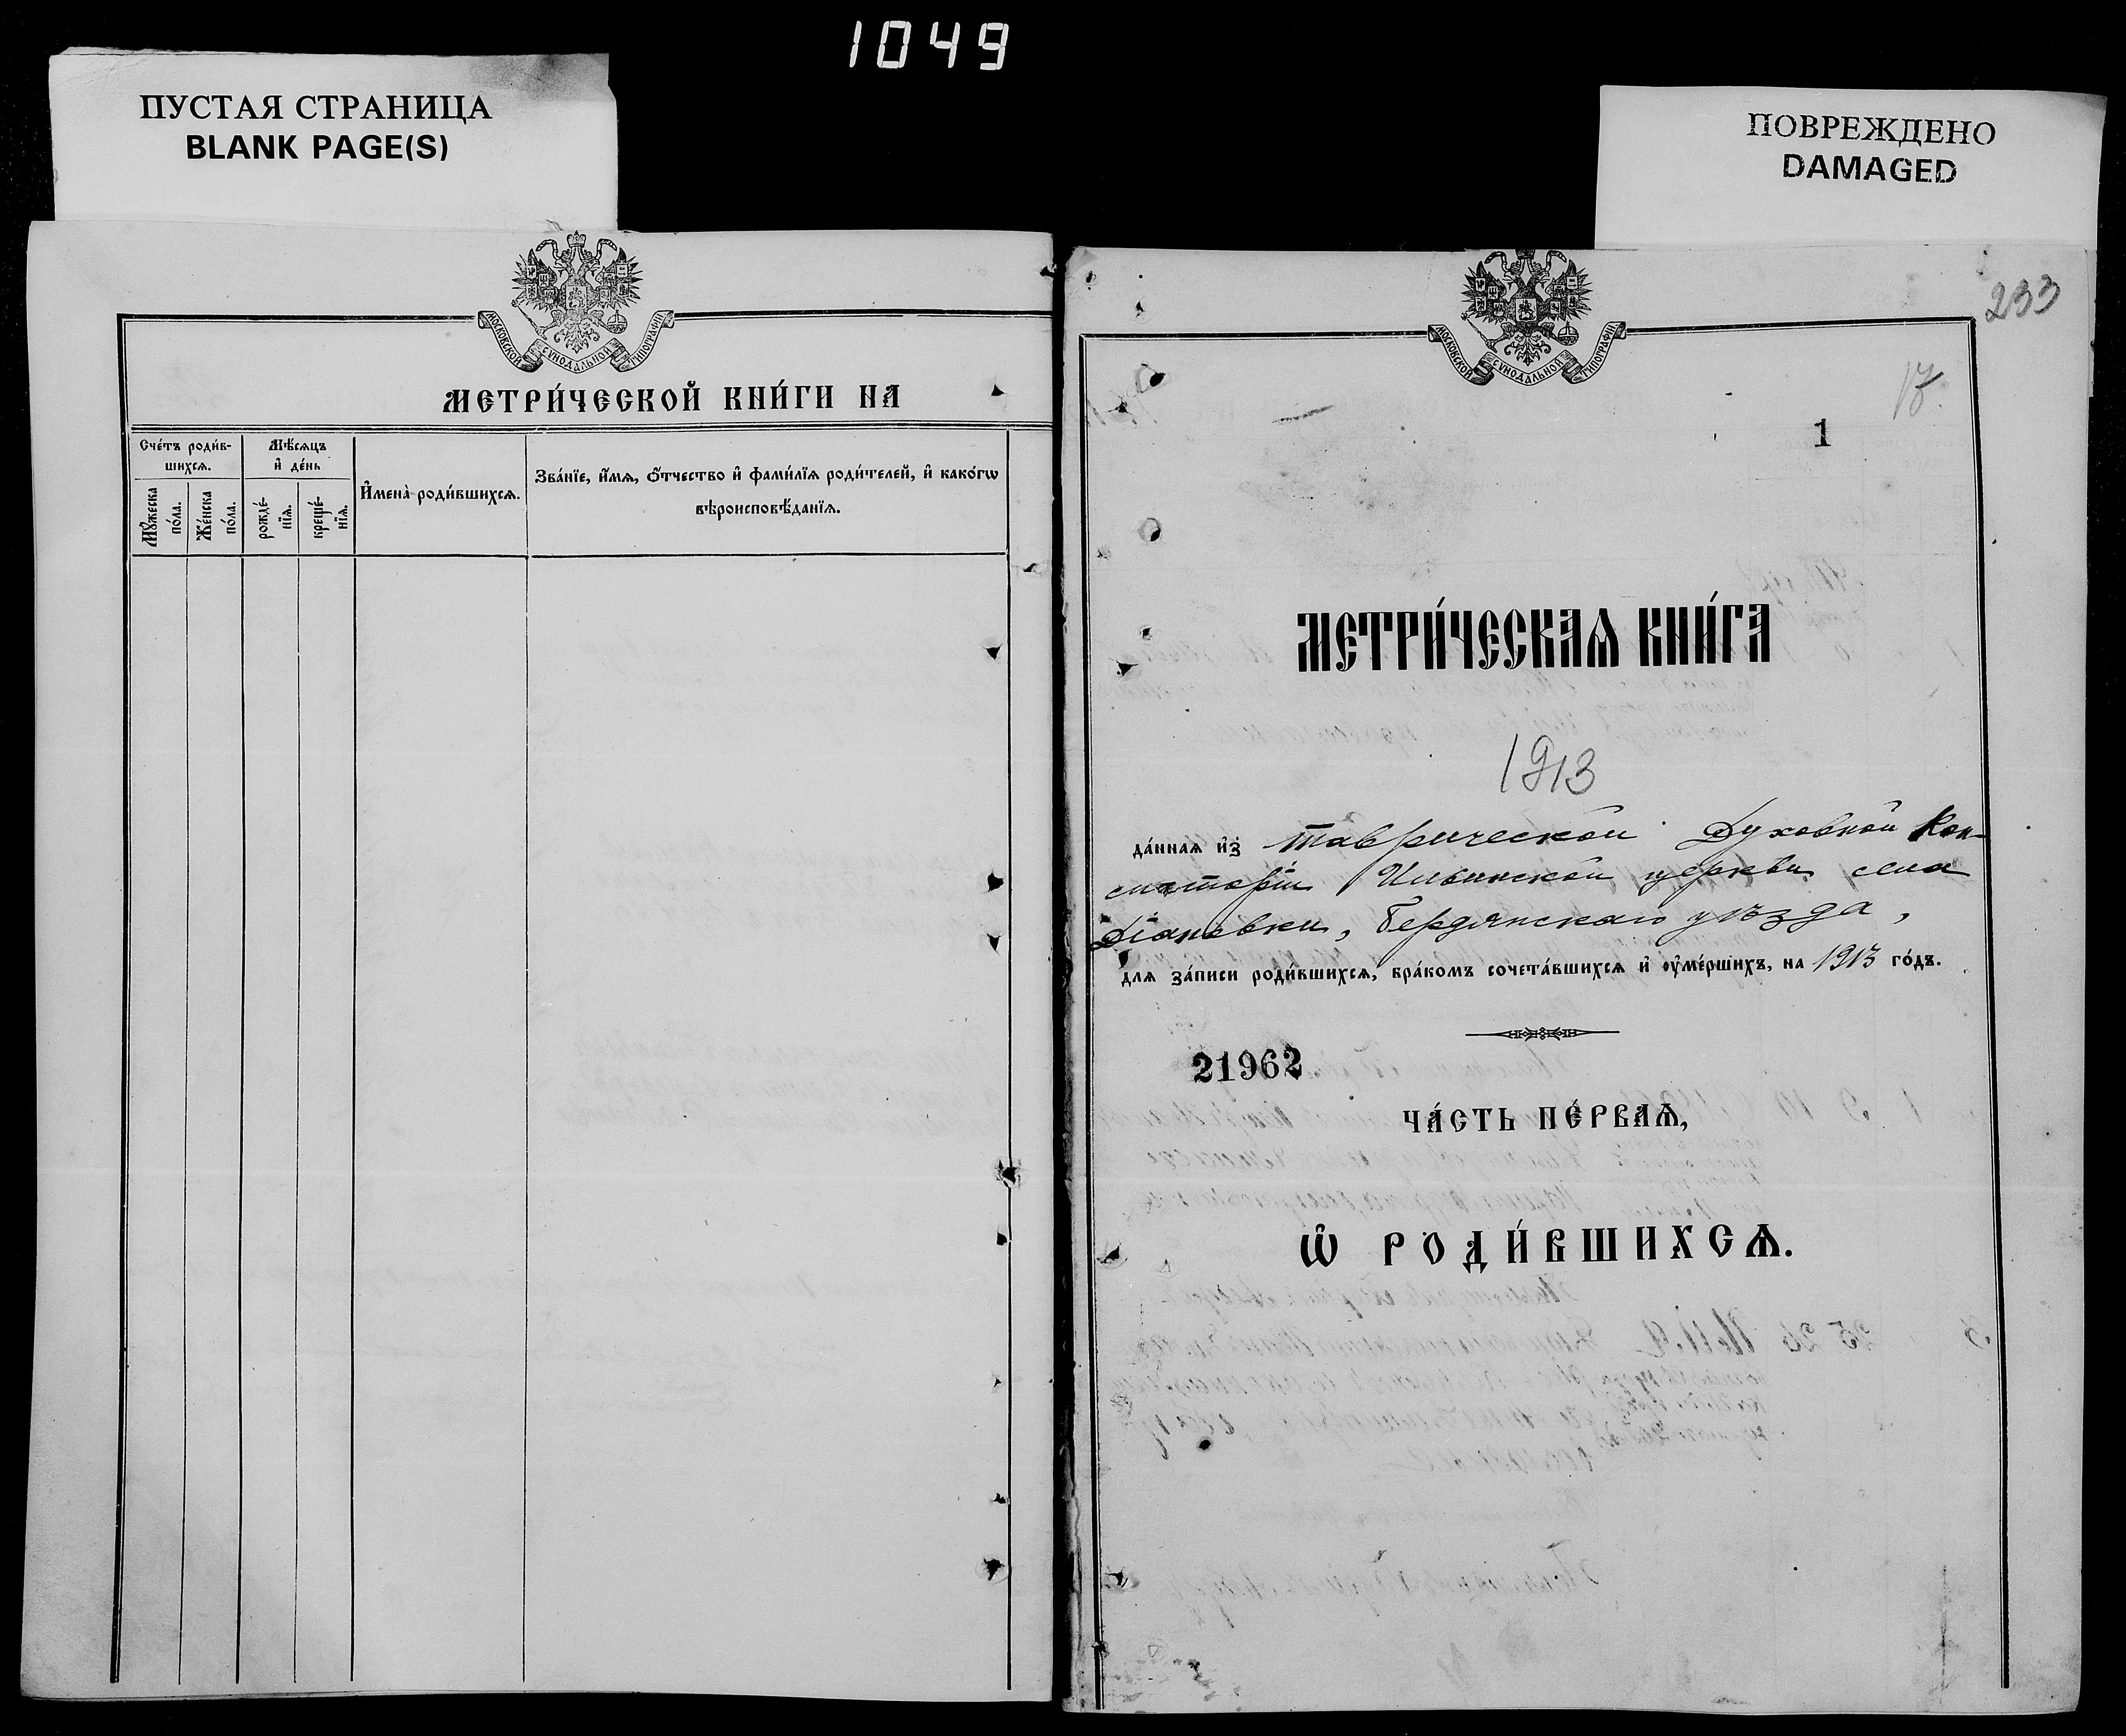 1049
ПУСТАЯ СТРАНИЦА
BLANK PAGE(S)
ПОВРЕЖДЕНО
DAMAGED
МОСКОВСКОЙ СѴНОДАЛЬНОЙ ТИПОГРАФІИ
МЕТРИ́ЧЕСКОЙ КНИ́ГИ НА
Сче́тъ роди́в-
шихсѧ.
Мѣ́сѧцъ
и҆ де́нь
И҆мена̀ роди́вшихсѧ.
Зва́нїе, и҆́мѧ, ѻ҆́тчество и҆ фами́лїѧ роди́телей, и҆ како́гѡ
вѣроисповѣ́данїѧ.
Мꙋ́жеска
по́ла.
Же́нска
по́ла.
рожде́-
нїѧ.
креще́-
нїѧ.
233
МОСКОВСКОЙ СѴНОДАЛЬНОЙ ТИПОГРАФІИ
17.
1
МЕТРИ́ЧЕСКАѦ КНИ́ГА
1913
да́ннаѧ и҆з̾ Таврической Духовной Кон-
систоріи Ильинской церкви села
Діановки, Бердянскаго уѣзда,
длѧ за́писи роди́вшихсѧ, бра́комъ сочета́вшихсѧ и҆ ᲂу҆ме́ршихъ, на 1913 го́дъ.
21962
ЧА́СТЬ ПЕ́РВАѦ,
Ѡ҆ РОДИ́ВШИХСѦ.